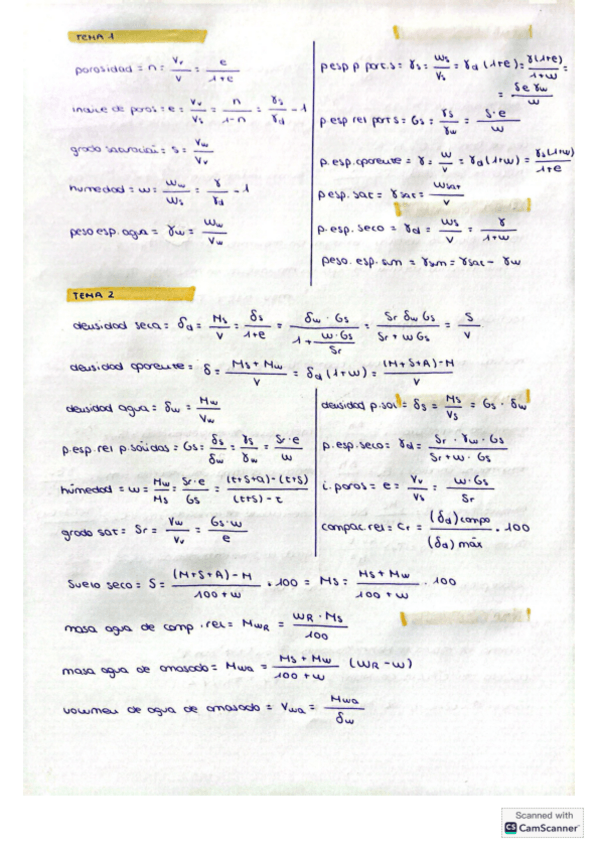 TEMA 1
porosidad = n = Vv/V = e/1+e
indice de poros = e = Vv/Vs = n/1-n = γs/γd - 1
grado saturación = s = Vw/Vv
humedad = w = Ww/Ws = γ/γd - 1
peso esp. agua = γw = Ww/Vw
p esp p part.s = γs = Ws/Vs = γd (1+e) = γ(1+e)/1+w =
= Se γw/w
p esp rel part s = Gs = γs/γw = s·e/w
p. esp. aparente = γ = W/V = γd (1+w) = γs(1+w)/1+e
p esp. sat = γsat = Wsat/V
p. esp. seco = γd = Ws/V = γ/1+w
peso. esp. sum = γsum = γsat - γw
TEMA 2
densidad seca = δd = Ms/V = δs/1+e = δw · Gs/1 + w·Gs/Sr = Sr δw Gs/Sr + w Gs = S/V
densidad aparente = δ = Ms + Mw/V = δd (1+w) = (M+S+A) - M/V
densidad agua = δw = Mw/Vw
p.esp. rel p. sólidas = Gs = δs/δw = γs/γw = Sr·e/w
húmedad = w = Mw/Ms = Sr·e/Gs = (t+s+a)-(t+s)/(t+s)-t
grado sat = Sr = Vw/Vv = Gs·w/e
densidad p.sol = δs = Ms/Vs = Gs · δw
p.esp.seco = γd = Sr · γw · Gs/Sr + w · Gs
i. poros = e = Vv/Vs = w·Gs/Sr
compac. rel = Cr = (δd) campo/(δd) máx · 100
Suelo seco = S = (M+S+A) - M/100 + w · 100 = Ms = Ms + Mw/100 + w · 100
masa agua de comp. rel = MwR = wR · Ms/100
masa agua de amasado = Mwa = Ms + Mw/100 + w (wR - w)
volumen de agua de amasado = Vwa = Mwa/δw
Scanned with
CS CamScanner